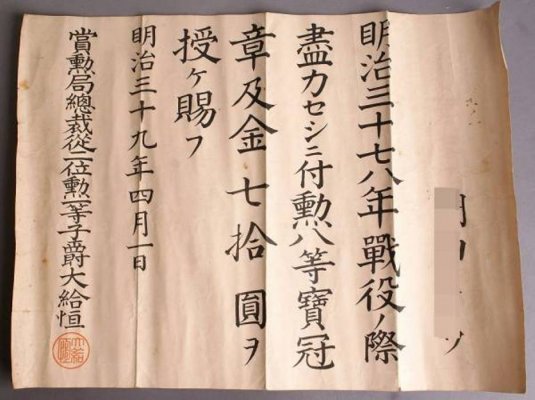 明治三十七八年戰役ノ際
盡力セシニ付勲八等寶冠
章及金七拾圓ヲ
授ケ賜フ
明治三十九年四月一日
賞勲局總裁從二位勲一等子爵大給恒